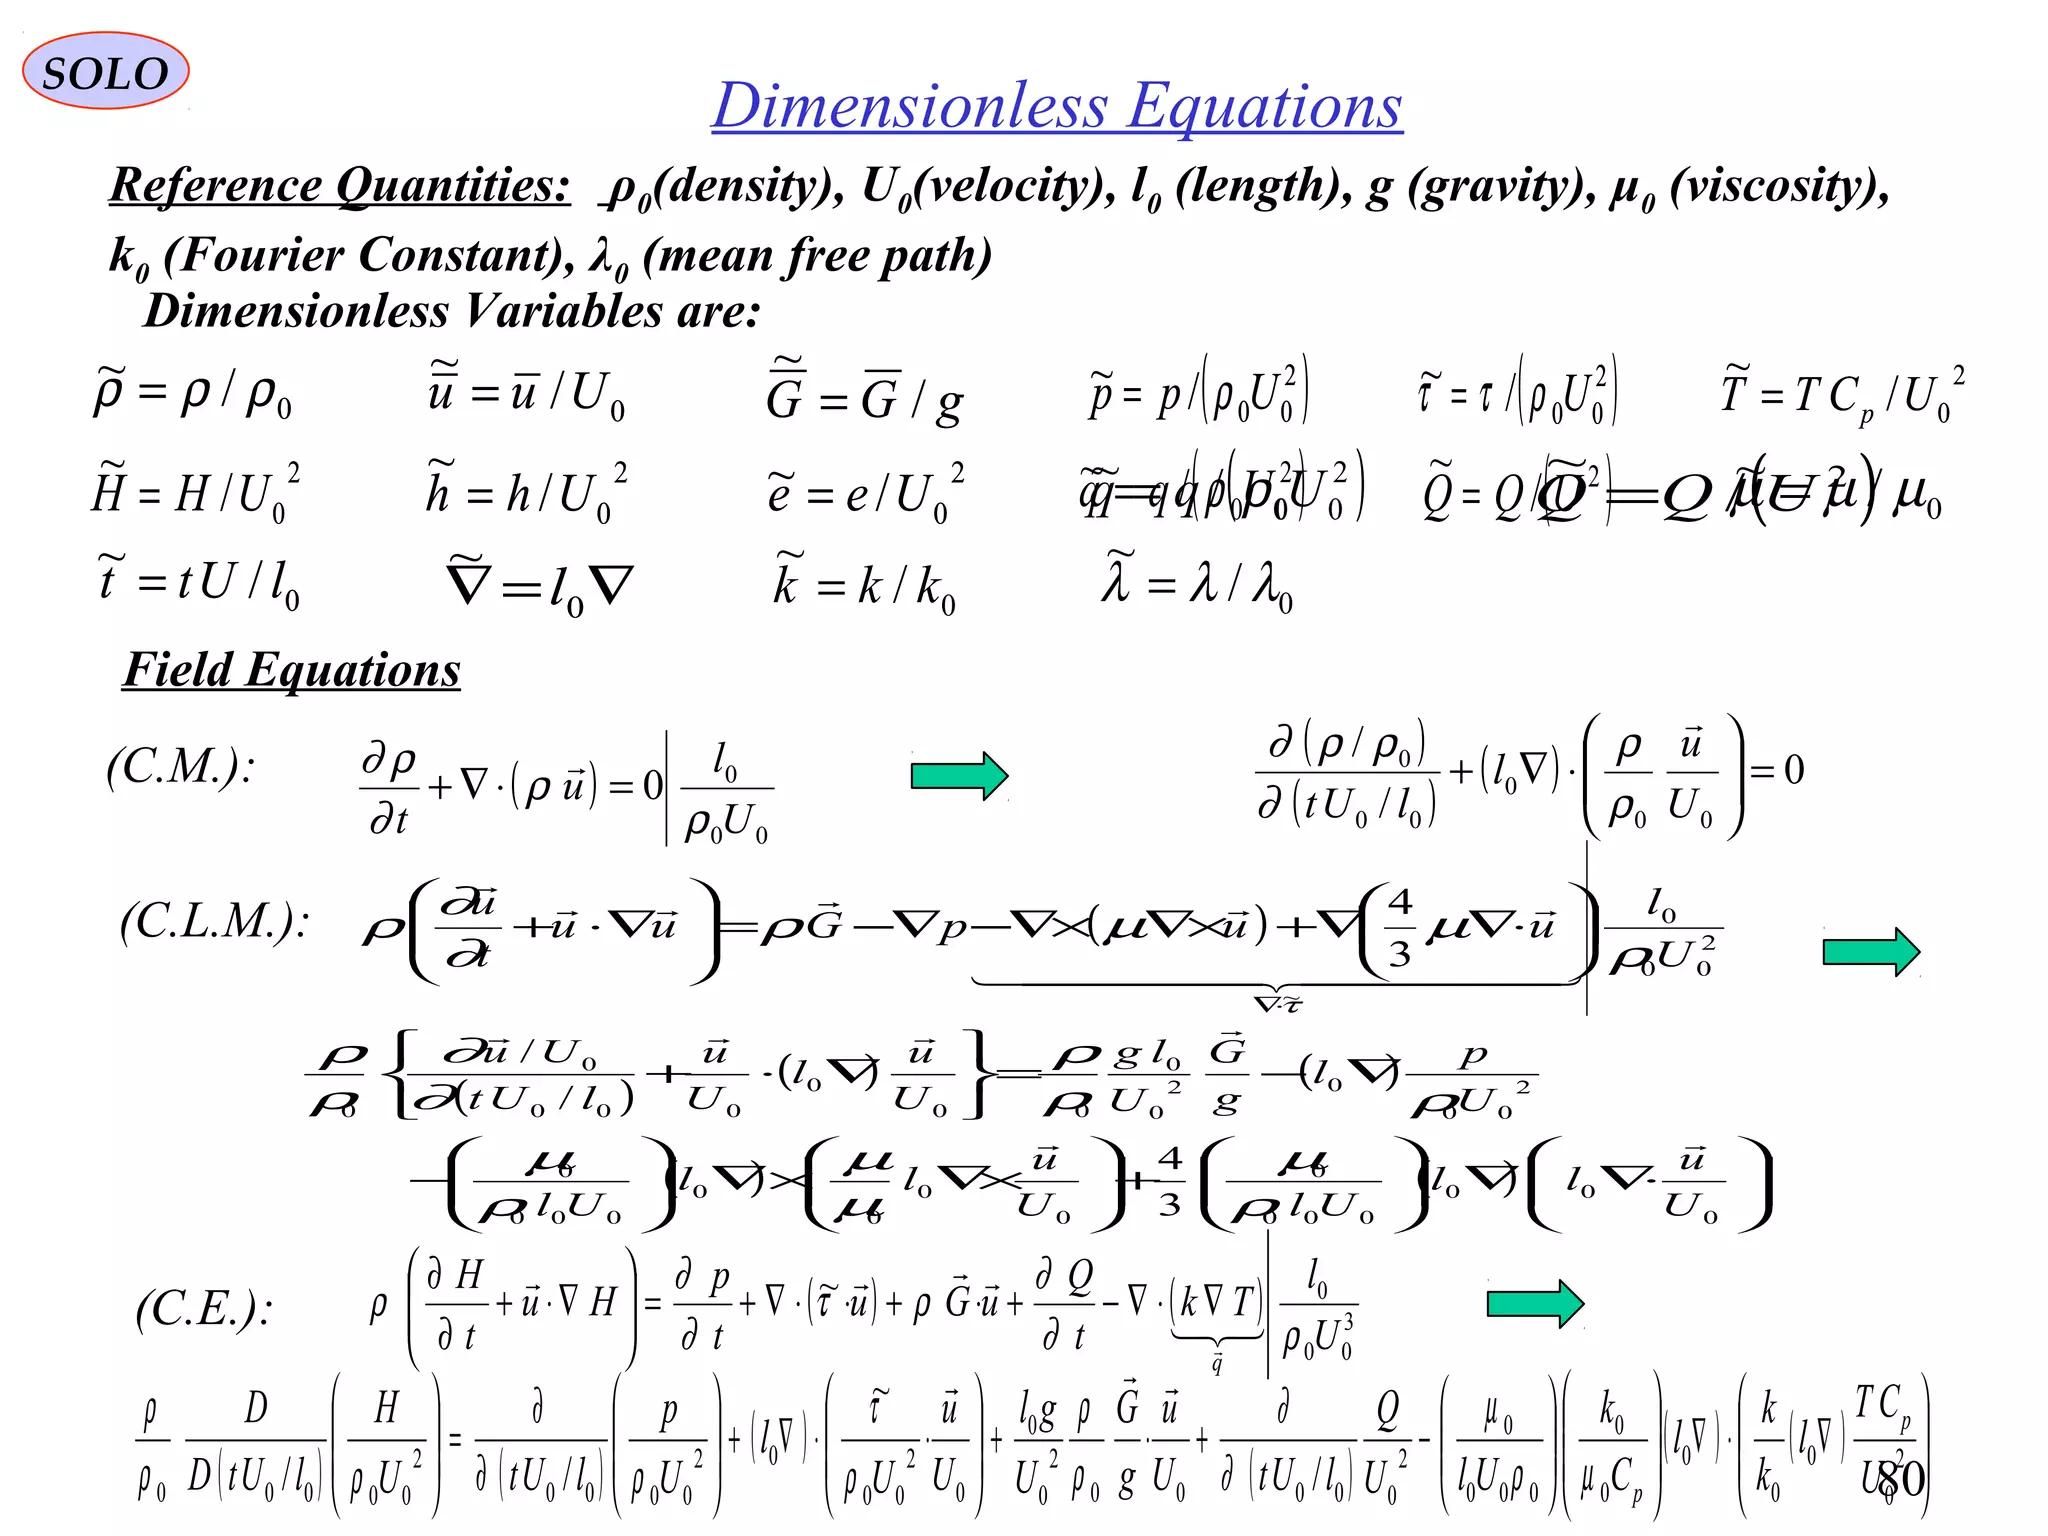 SOLO
Dimensionless Equations
Reference Quantities: ρ₀(density), U₀(velocity), l₀ (length), g (gravity), μ₀ (viscosity),
k₀ (Fourier Constant), λ₀ (mean free path)
Dimensionless Variables are:
ρ̃ = ρ / ρ₀   ũ̅ = u̅ / U₀   G̃̅ = G̅ / g   p̃ = p / (ρ₀U₀²)   τ̃ = τ / (ρ₀U₀²)   T̃ = T C_p / U₀²
H̃ = H / U₀²   h̃ = h / U₀²   ẽ = e / U₀²   q̃ = q / (ρ₀U₀²)   Q̃ = Q / (U²)   μ̃ = μ / μ₀
t̃ = t U / l₀   ∇̃ = l₀∇   k̃ = k / k₀   λ̃ = λ / λ₀
Field Equations
(C.M.): ∂ρ/∂t + ∇·(ρ u⃗) = 0 | l₀/(ρ₀U₀)   ∂(ρ/ρ₀)/∂(tU₀/l₀) + (l₀∇)·(ρ/ρ₀ u⃗/U₀) = 0
(C.L.M.): ρ(∂u⃗/∂t + u⃗·∇u⃗) = ρG⃗ − ∇p − ∇×(μ∇×u⃗) + ∇(4/3 μ∇·u⃗) | l₀/(ρ₀U₀²)
∇·τ̃
ρ/ρ₀ {∂u⃗/U₀ / ∂(tU₀/l₀) + u⃗/U₀·(l₀∇) u⃗/U₀} = ρ/ρ₀ g l₀/U₀² G⃗/g − (l₀∇) p/(ρ₀U₀²)
− (μ₀/(ρ₀l₀U₀)) (l₀∇)×(μ/μ₀ l₀∇× u⃗/U₀) + 4/3 (μ₀/(ρ₀l₀U₀)) (l₀∇)(l₀∇· u⃗/U₀)
(C.E.): ρ (∂H/∂t + u⃗·∇H) = ∂p/∂t + ∇·(τ̃·u⃗) + ρ G⃗·u⃗ + ∂Q/∂t − ∇·(k∇T) | l₀/(ρ₀U₀³)
q⃗
ρ/ρ₀ D/D(tU₀/l₀) (H/(ρ₀U₀²)) = ∂/∂(tU₀/l₀) (p/(ρ₀U₀²)) + (l₀∇)·(τ̃/(ρ₀U₀²)· u⃗/U₀) + l₀g/U₀² ρ/ρ₀ G⃗/g · u⃗/U₀ + ∂/∂(tU₀/l₀) Q/U₀² − (μ₀/(l₀U₀ρ₀)) (k₀/(μ₀C_p)) (l₀∇)·(k/k₀ (l₀∇) T C_p/U₀²)
80